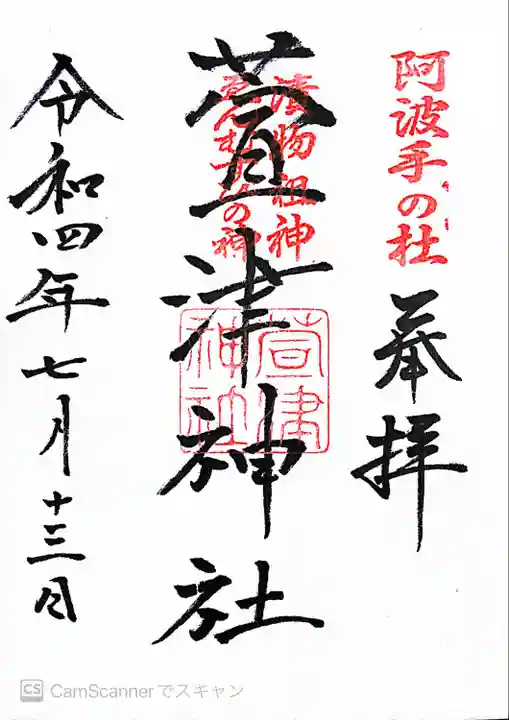 阿波手の杜
奉拝
漬物祖神
縁むすびの神
萱津神社
萱津
神社
令和四年七月十三日
CS CamScannerでスキャン